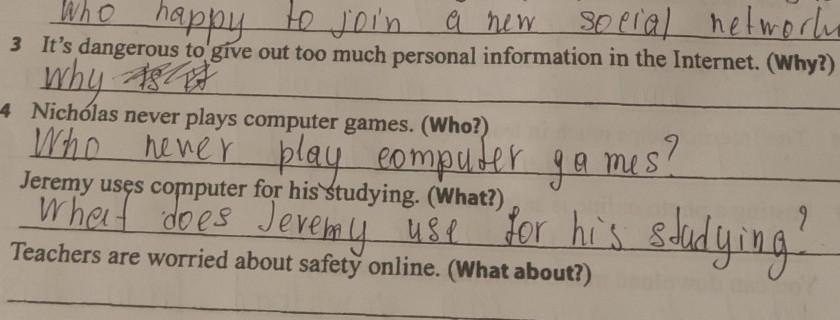 Who happy to join a new social network
3 It's dangerous to give out too much personal information in the Internet. (Why?)
Why
4 Nicholas never plays computer games. (Who?)
Who never play computer games?
Jeremy uses computer for his studying. (What?)
What does Jeremy use for his studying?
Teachers are worried about safety online. (What about?)